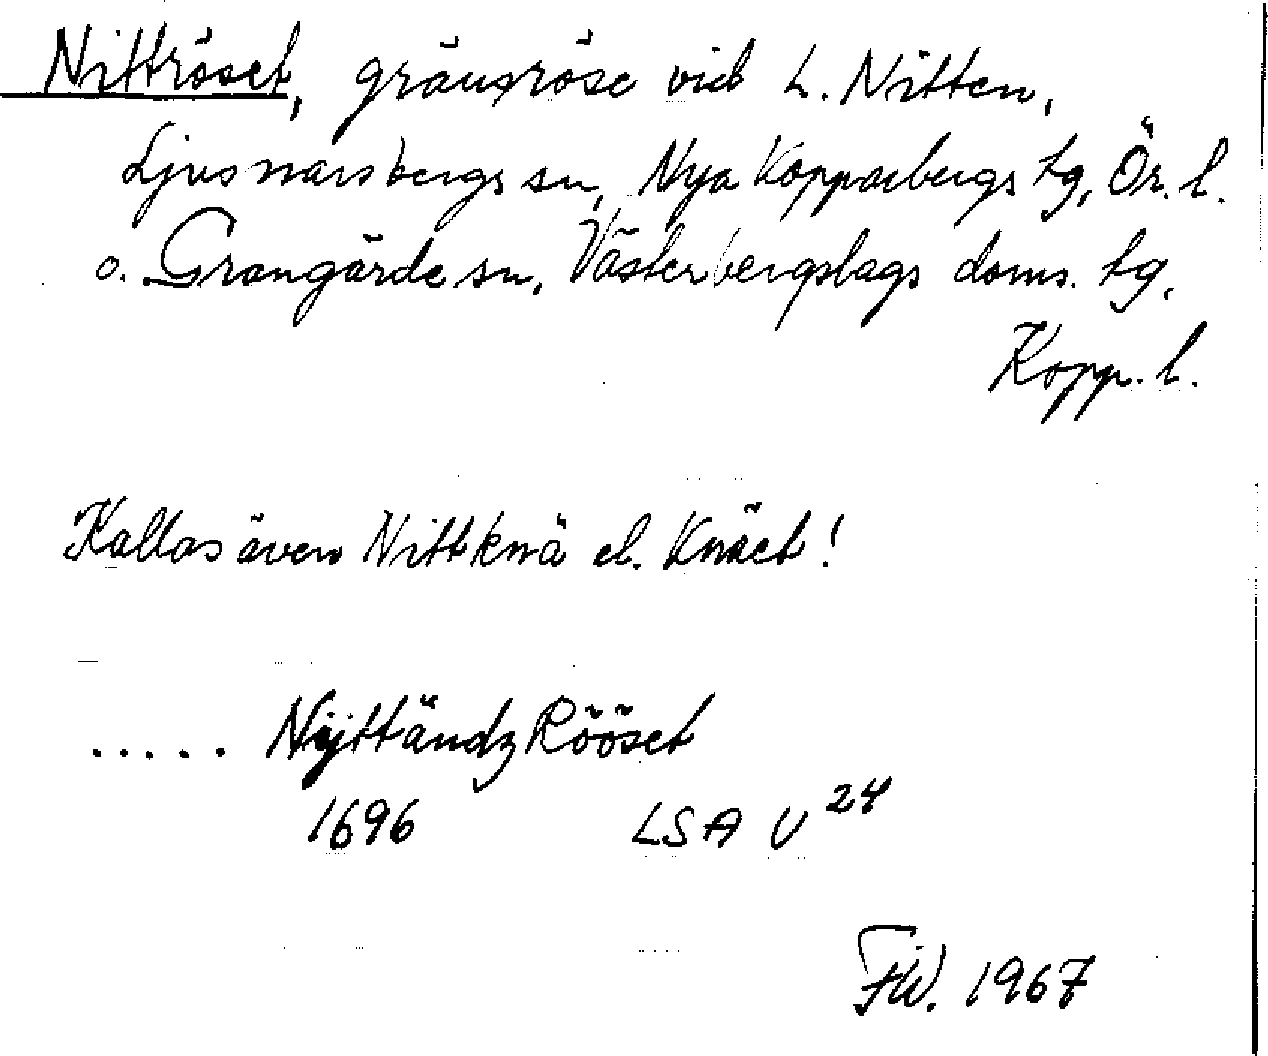 Nittröset, gränsröse vid L. Nitten,
Ljusnarsbergs sn, Nya Kopparbergs tg, Ör. l.
o. Grangärde sn, Västerbergslags doms. tg,
Kopp. l.
Kallas även Nittknä el. Knäet!
..... Nijttändz Rööset
1696 LSA U 24
FW. 1967